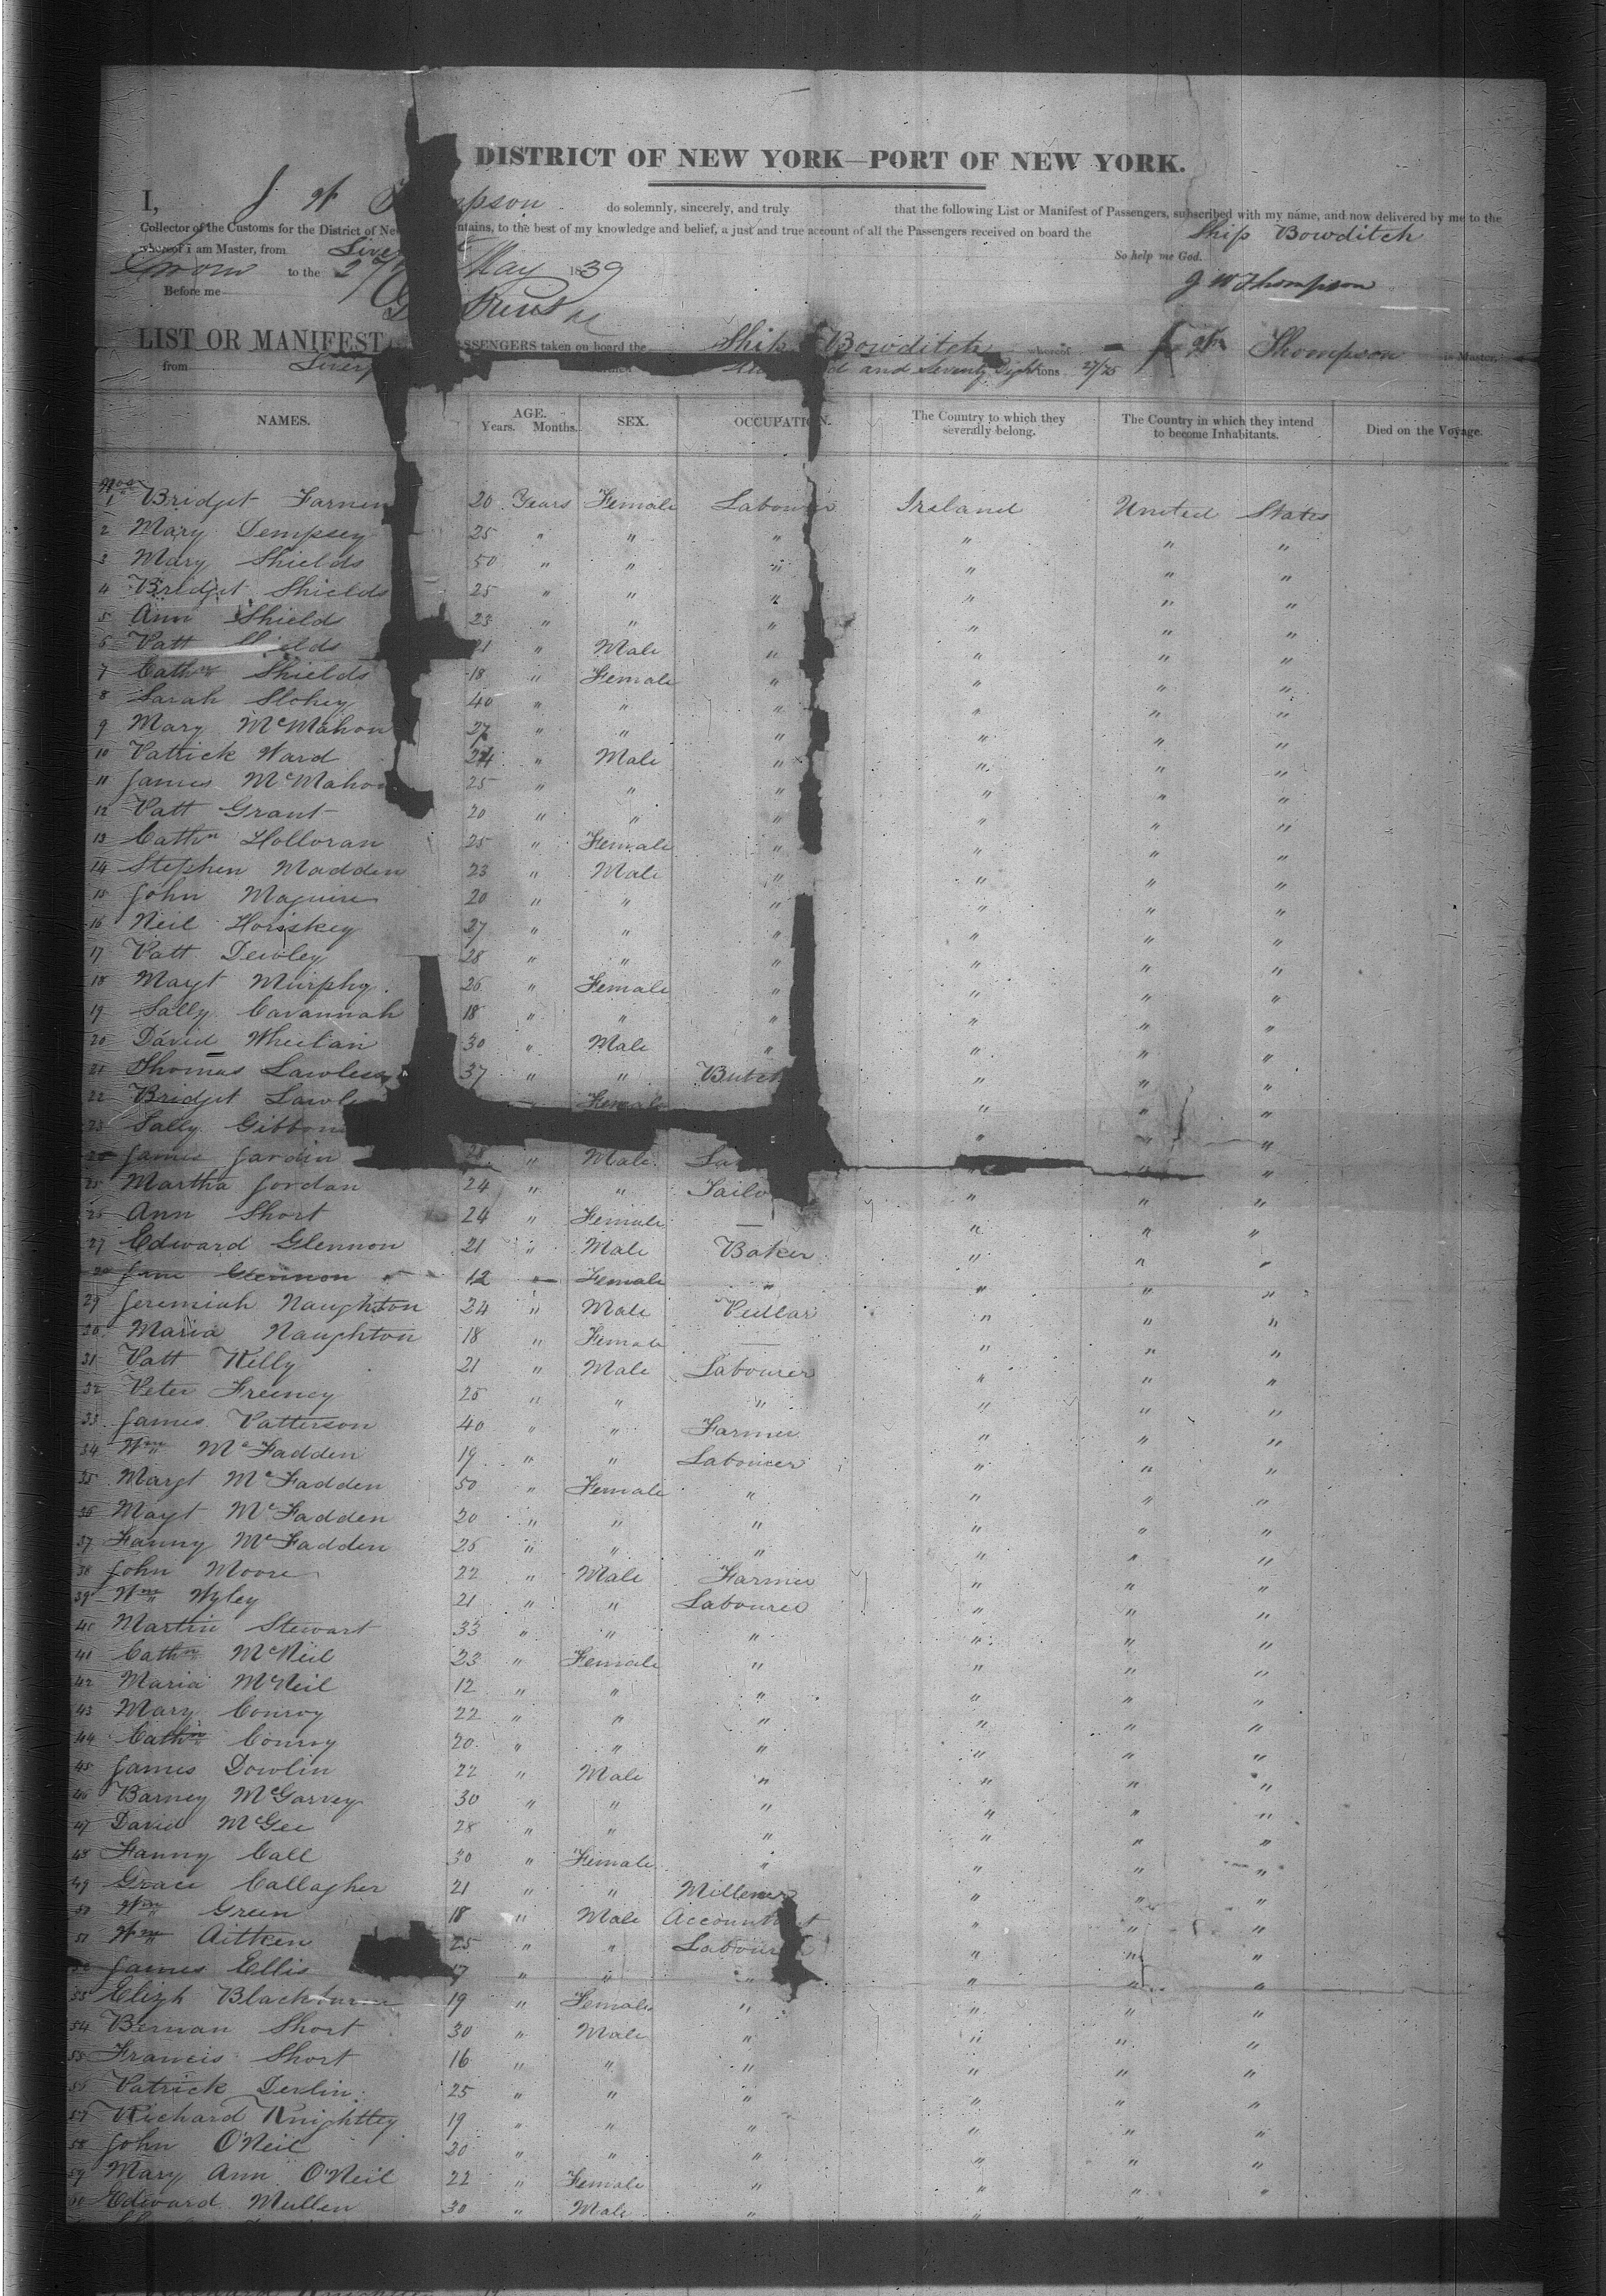 DISTRICT OF NEW YORK—PORT OF NEW YORK.
I, J W mpson do solemnly, sincerely, and truly that the following List or Manifest of Passengers, subscribed with my name, and now delivered by me to the
Collector of the Customs for the District of Ne ntains, to the best of my knowledge and belief, a just and true account of all the Passengers received on board the Ship Bowditch
whereof I am Master, from Liver So help me God.
to the 27 May 1839
Before me J W Thompson
LIST OR MANIFEST SSENGERS taken on board the Ship Bowditch whereof Thompson is Master,
from Liverp d and Seventy Eight tons 27/75
NAMES. AGE. Years. Months. SEX. OCCUPATION. The Country to which they severally belong. The Country in which they intend to become Inhabitants. Died on the Voyage.
Nos
1 Bridget Farn 20 Years Female Labou Ireland United States
2 Mary Dempsey 25 " " " " " "
3 Mary Shields 50 " " " " " "
4 Bridget Shields 25 " " " " " "
5 Ann Shields 23 " " " " " "
6 Patt Shields 21 " Male " " " "
7 Cathn Shields 18 " Female " " " "
8 Sarah Slohey 40 " " " " " "
9 Mary McMahon 27 " " " " " "
10 Pattick Ward 24 " Male " " " "
11 James McMaho 25 " " " " " "
12 Patt Grant 20 " " " " " "
13 Cathn Holloran 25 " Female " " " "
14 Stephen Madden 23 " Male " " " "
15 John Maguire 20 " " " " " "
16 Neil Horiskey 27 " " " " " "
17 Patt Dewley 28 " " " " " "
18 Magt Murphy 26 " Female " " " "
19 Sally Cavannah 18 " " " " " "
20 David Wheelan 30 " Male " " " "
21 Thomas Lawless 37 " " Butch " " "
22 Bridget Lawl Female " " "
23 Sally Gibbon " " "
James Jardin 28 " Male La " "
25 Martha Jordan 24 " " Tailo " " "
26 Ann Short 24 " Female — " " "
27 Edward Glennon 21 " Male Baker " " "
28 Jane Glennon 12 " Female " " " "
29 Jeremiah Naughton 24 " Male Pedlar " " "
30 Maria Naughton 18 " Female — " " "
31 Patt Kelly 21 " Male Labourer " " "
32 Peter Freeney 25 " " " " " "
33 James Patterson 40 " " Farmer " " "
34 Wm McFadden 19 " " Labourer " " "
35 Margt McFadden 50 " Female " " " "
36 Magt McFadden 20 " " " " " "
37 Fanny McFadden 26 " " " " " "
38 John Moore 22 " Male Farmer " " "
39 Wm Wyley 21 " " Labourer " " "
40 Martin Stewart 33 " " " " " "
41 Cathn McNeil 23 " Female " " " "
42 Maria McNeil 12 " " " " " "
43 Mary Conroy 22 " " " " " "
44 Cathn Conroy 20 " " " " " "
45 James Dowlin 22 " Male " " " "
46 Barney McGarvey 30 " " " " " "
47 David McGee 28 " " " " " "
48 Fanny Call 30 " Female " " " "
49 Grace Callagher 21 " " Millener " " "
50 Wm Green 18 " Male Accountant " " "
51 Wm Aitken 25 " " Labour " " "
James Ellis 17 " " " " " "
53 Elizh Blackburn 19 " Female " " " "
54 Bernan Short 30 " Male " " " "
55 Francis Short 16 " " " " " "
56 Patrick Derlin 25 " " " " " "
57 Richard Knightley 19 " " " " " "
58 John O'Neil 20 " " " " " "
59 Mary Ann O'Neil 22 " Female " " " "
60 Edward Mullen 30 " Male " " "